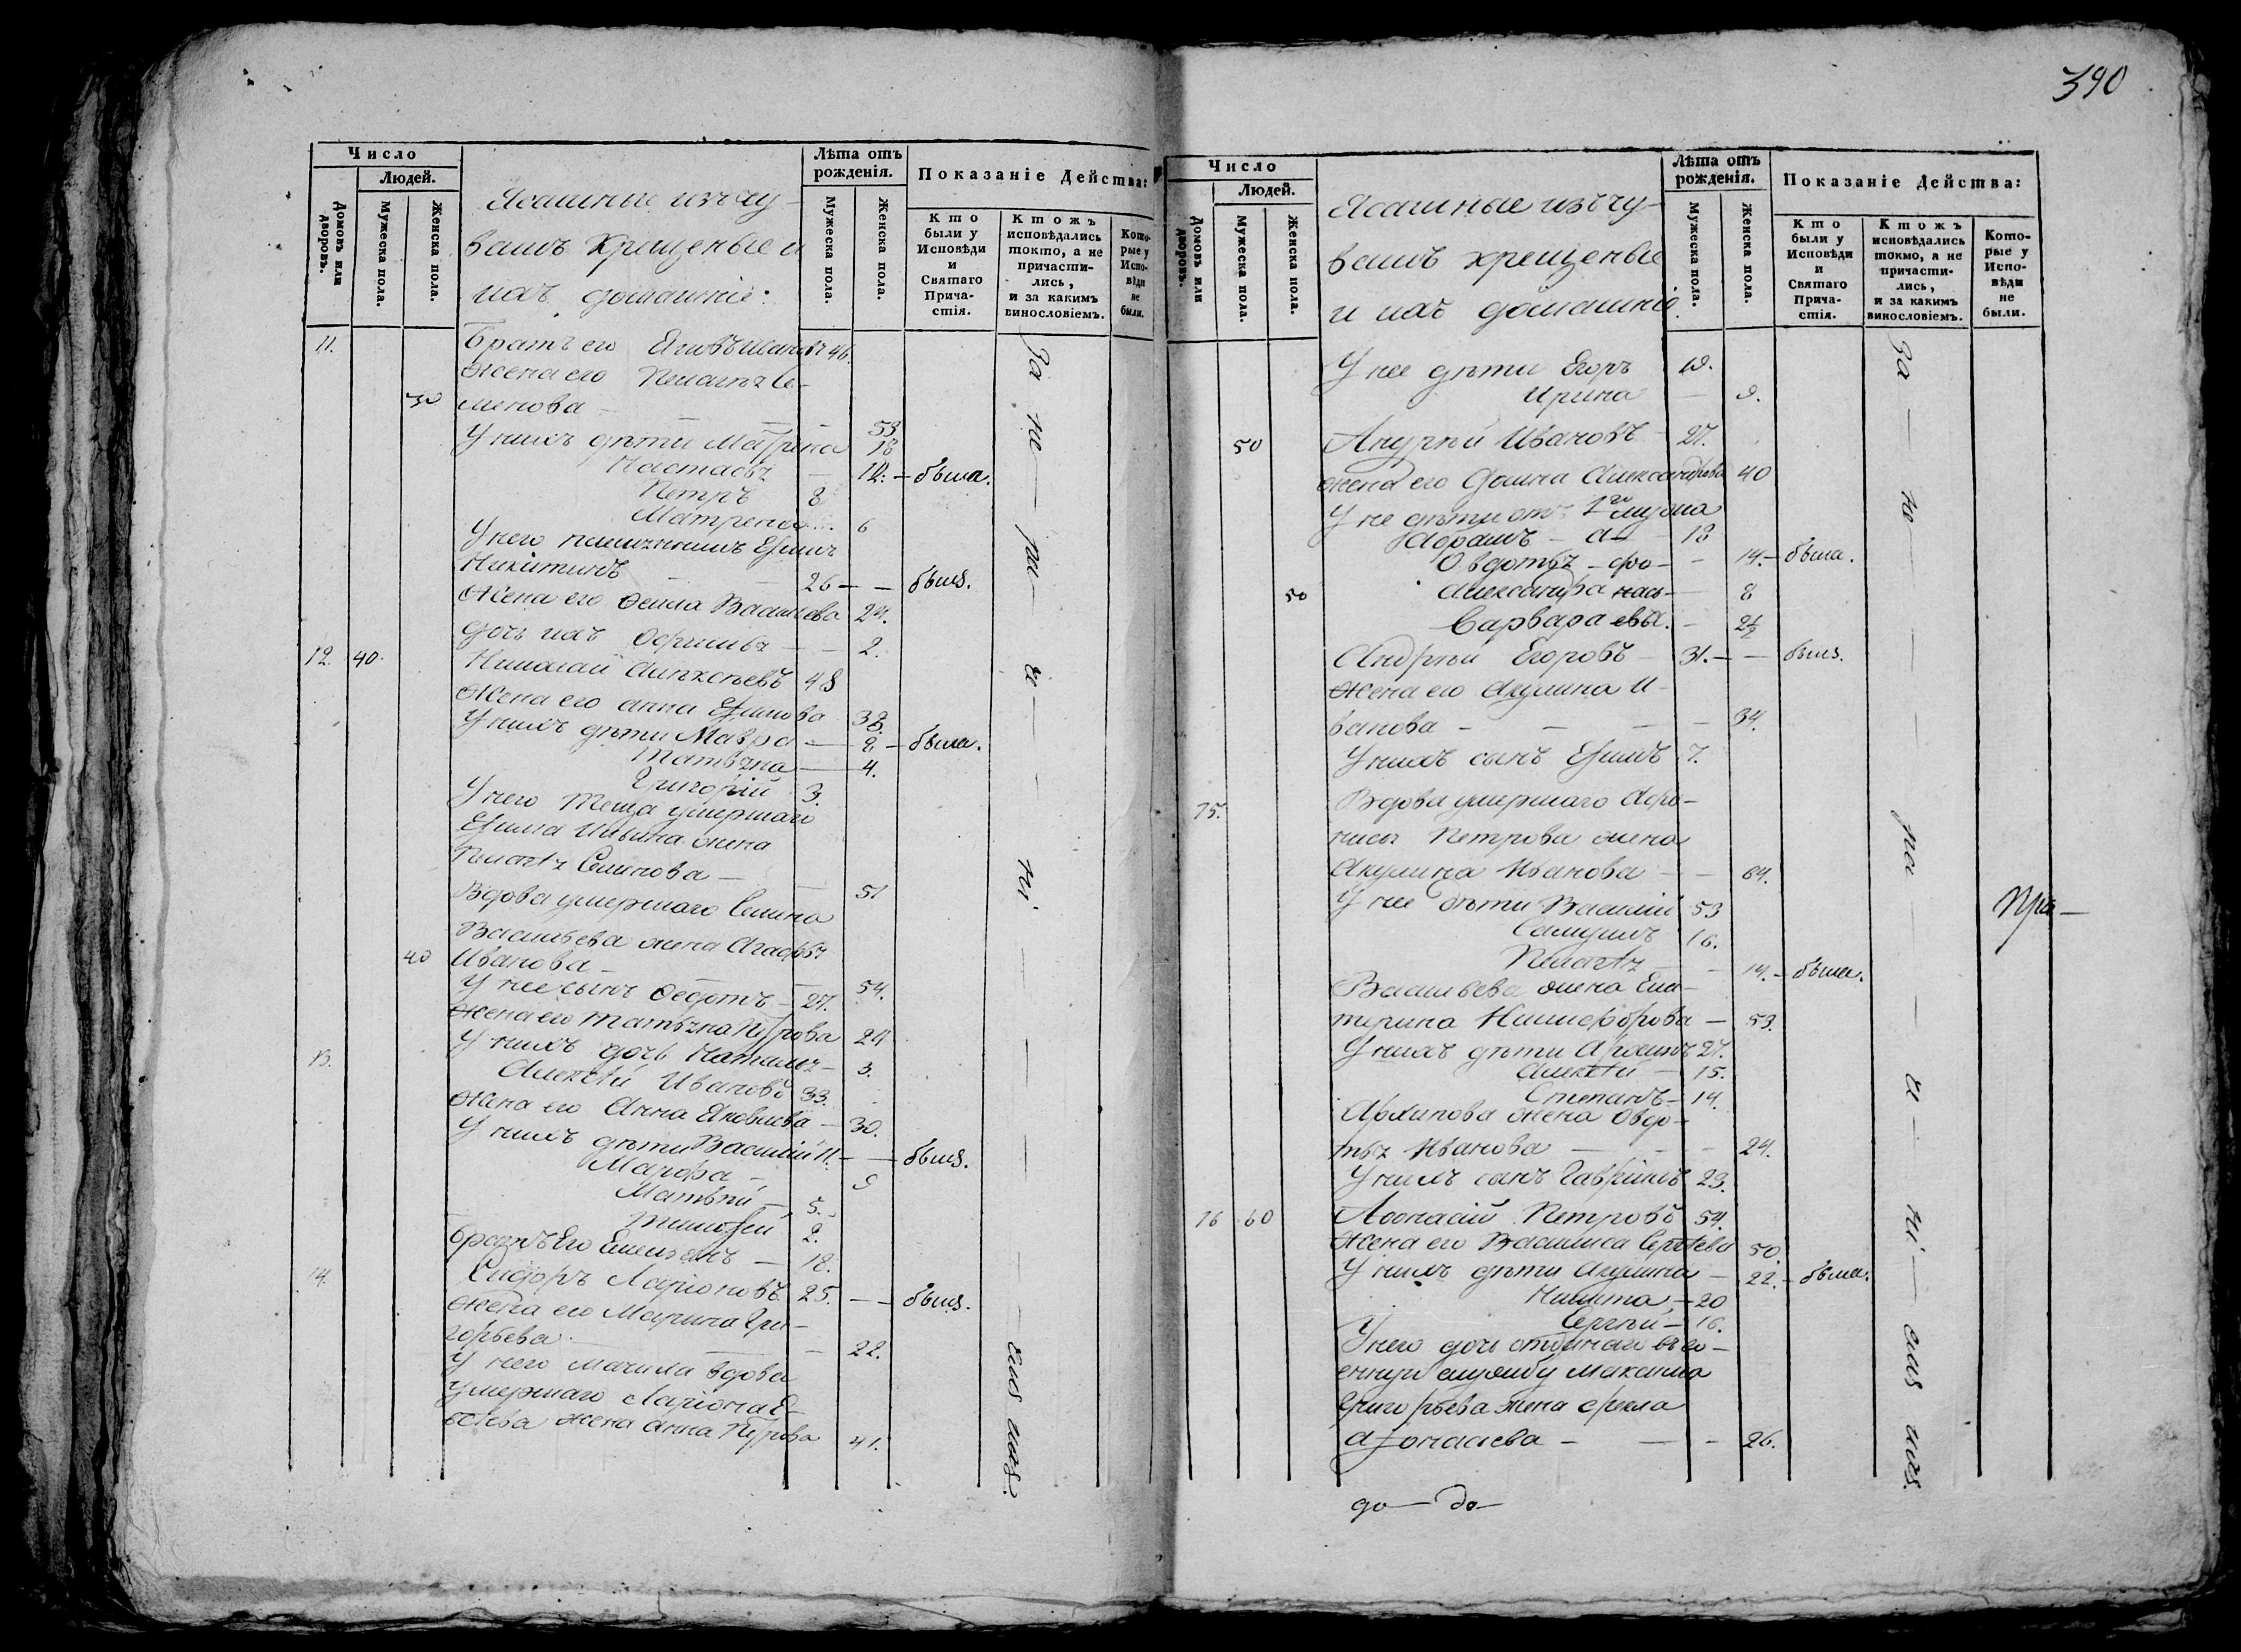 390
Число
Людей.
Домовъ или дворовъ.
Мужеска пола.
Женска пола.
Ясашные изъ чу-
вашъ крещеные и
ихъ домашніе:
Лѣта отъ рожденія.
Мужеска пола.
Женска пола.
Показаніе Действа:
Кто были у Исповѣди и Святаго Прича- стія.
Ктожъ исповѣдались токмо, а не причасти- лись, и за какимъ винословіемъ.
Кото- рые у Испо- вѣди не были.
11. Братъ его 46.
Жена его Пелагѣя Се-
30 менова — 53
У нихъ дѣти Маѳрена 18
Настасья — 12. — была.
Петръ 8
Матрена 6
У него племянникъ Ефимъ
Никитинъ — 26 — — былъ.
Жена его Ѳекла Васильева 24.
дочь ихъ — 2.
12. 40. Николай Алексѣевъ 48
Жена его Анна Ефимова 38.
У нихъ дѣти Мавра — 8 — была.
Татьяна — 4.
Григорій 3.
У него теща умершаго
Ефима Ильина жена
Пелагѣя Семенова — 51
Вдова умершаго Семена
Васильева жена Агафья
40 Иванова — 54.
У нее сынъ Ѳедотъ — 27.
Жена его Татьяна Петрова 24
У нихъ дочь Наталья — 3.
13. Алексѣй Ивановъ 33.
Жена его Анна Яковлева — 30.
У нихъ дѣти Василій 11. — — былъ.
Марфа — 9
Матвѣй — 5.
Тимофей 2.
Братъ Его Емельянъ — 18.
14. Сидоръ Ларіоновъ 25. — — былъ.
Жена его Марина Гри-
горьева — 22.
У него мачиха вдова
умершаго Ларіона Е-
жена Анна Петрова 41.
За не
ра
д
ні
емъ ихъ.
Число
Людей.
Домовъ или дворовъ.
Мужеска пола.
Женска пола.
Ясашные изъ чу-
вашъ крещеные
и ихъ домашніе.
Лѣта отъ рожденія.
Мужеска пола.
Женска пола.
Показаніе Действа:
Кто были у Исповѣди и Святаго Прича- стія.
Ктожъ исповѣдались токмо, а не причасти- лись, и за какимъ винословіемъ.
Кото- рые у Испо- вѣди не были.
У нее дѣти Егоръ
Ирина — 9.
50 Андрѣй Ивановъ 27.
жена его Домна Александрова 40
У не дѣти отъ 1го мужа
Абрамъ — 18
Овдотья — 14. — была.
50 Александра — 8
Варвара — 2½
Андрѣй Егоровъ — 31. — — былъ.
Жена его Акулина И-
ванова — — — — 34.
У нихъ сынъ Ефимъ 7.
15. Вдова умершаго Афо-
насья Петрова жена
Акулина Иванова — — 64.
У нее дѣти Василій 53
Самушъ 16.
Пелагѣя — 14. — была.
Васильева жена Ека-
терина Никифорова — 53.
У нихъ дѣти Архипъ 27.
Алексѣй — 15.
Степанъ — 14.
Архипова жена Овдо-
тья Иванова — — — 24.
У нихъ сынъ Гаврилъ
16 60 Афонасій Петровъ 54.
Жена его Василиса Сергѣева 50.
У нихъ дѣти Акулина — 22. — была.
Никита — 20
Сергѣй — 16.
У него дочь отданнаго въ во-
енную службу Максима
Григорьева жена Ѳекла
Афонасьева — — — 26.
За
не
ра
д
ні
емъ ихъ.